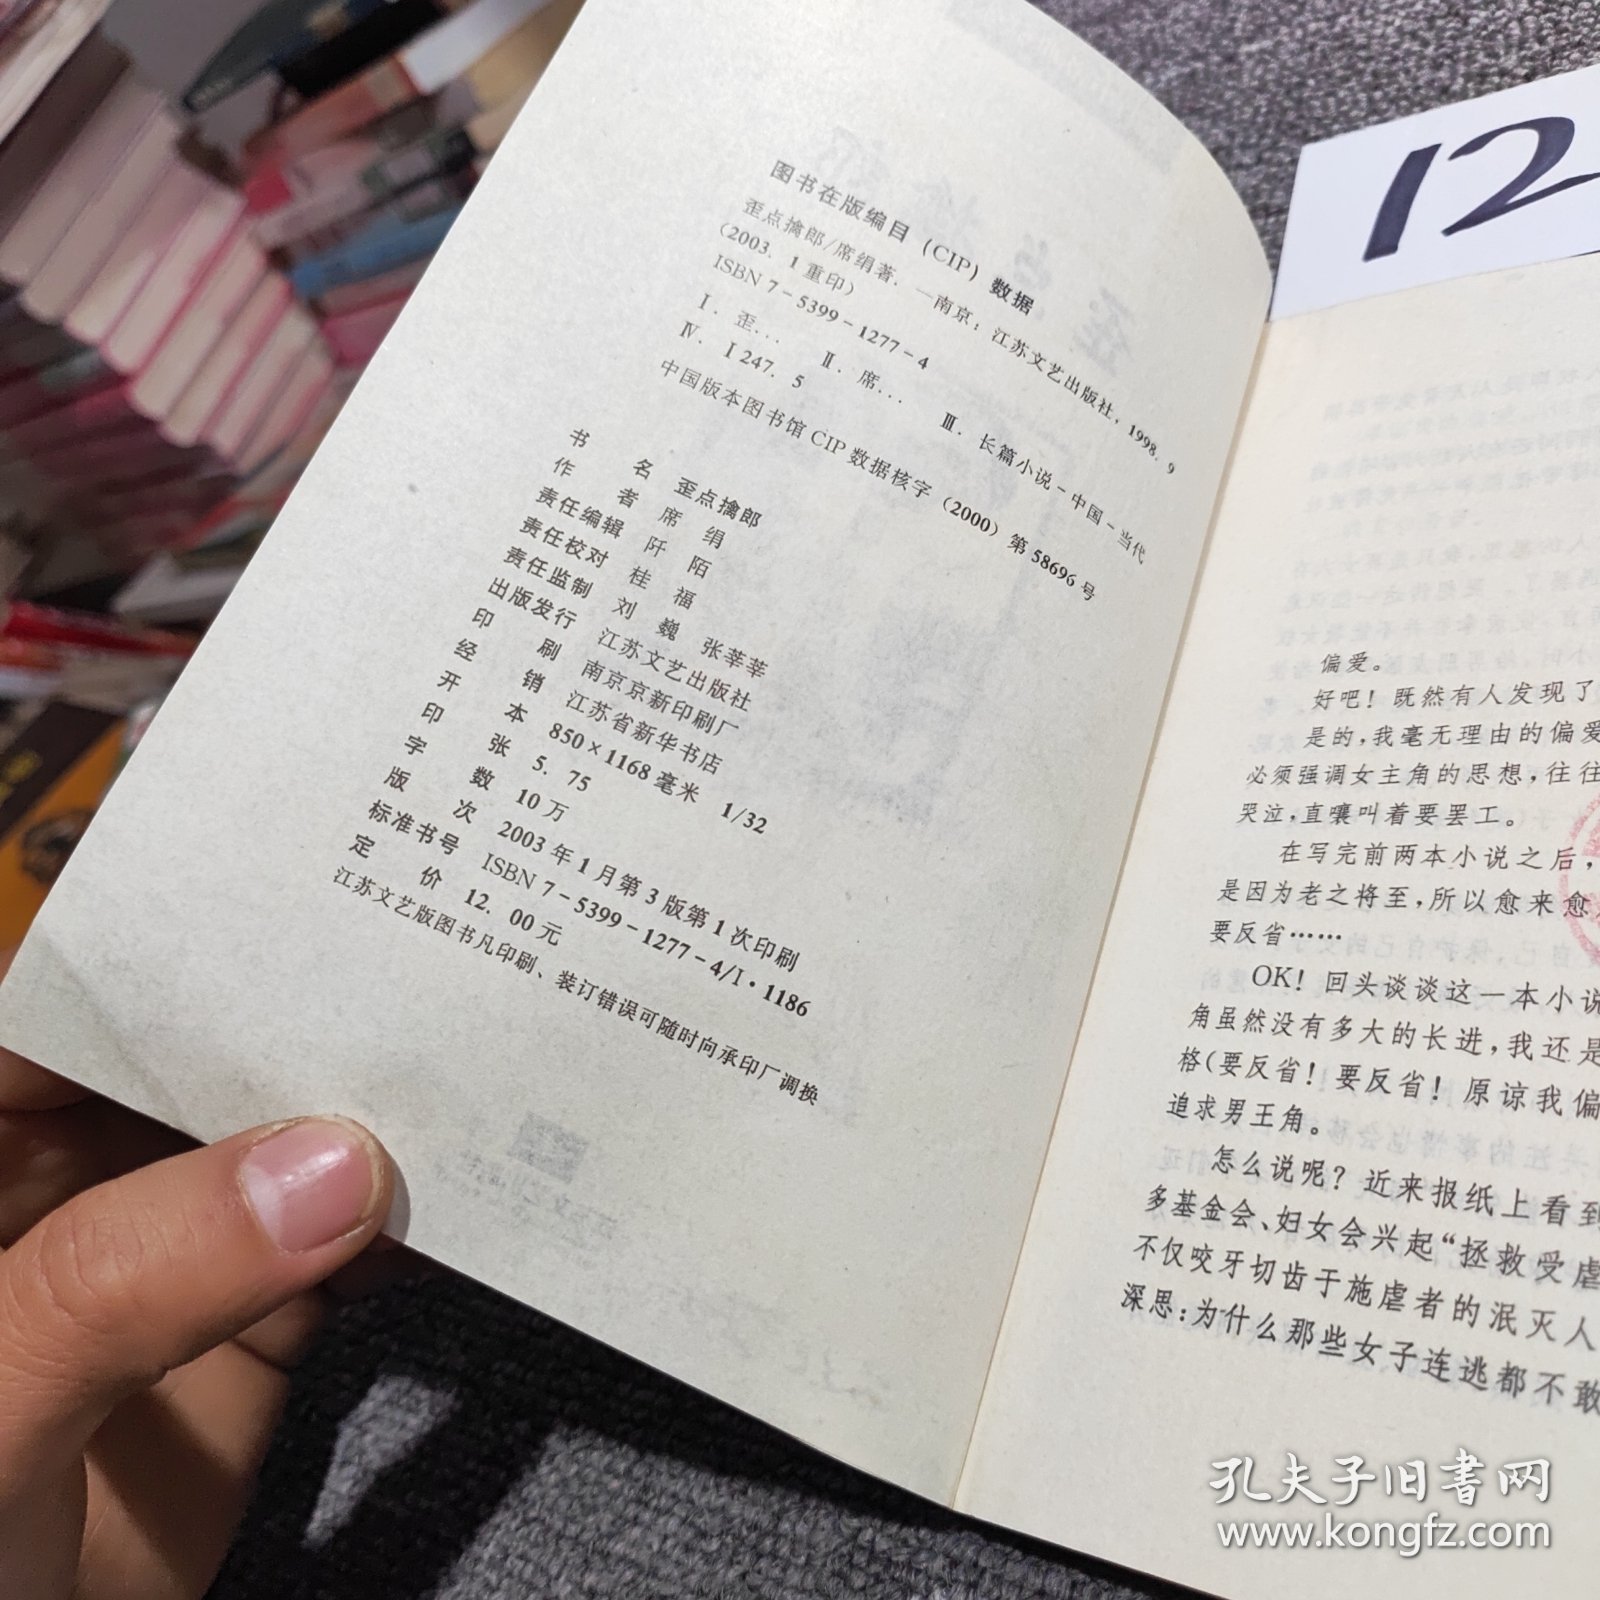 图书在版编目（CIP）数据
歪点擒郎/席绢著．—南京：江苏文艺出版社，1998．9
（2003．1重印）
ISBN 7-5399-1277-4
Ⅰ．歪… Ⅱ．席… Ⅲ．长篇小说-中国-当代
Ⅳ．Ⅰ247．5
中国版本图书馆CIP数据核字（2000）第58696号
书名 歪点擒郎
作者 席绢
责任编辑 阡陌
责任校对 桂福
责任监制 刘巍 张莘莘
出版发行 江苏文艺出版社
印刷 南京京新印刷厂
经销 江苏省新华书店
开本 850×1168毫米 1/32
印张 5.75
字数 10万
版次 2003年1月第3版第1次印刷
标准书号 ISBN 7-5399-1277-4/I·1186
定价 12.00元
江苏文艺版图书凡印刷、装订错误可随时向承印厂调换
12
偏爱。
好吧！既然有人发现了
是的，我毫无理由的偏爱
必须强调女主角的思想，往往
哭泣，直嚷叫着要罢工。
在写完前两本小说之后，
是因为老之将至，所以愈来愈
要反省……
OK！回头谈谈这一本小说
角虽然没有多大的长进，我还是
格（要反省！要反省！原谅我偏
追求男王角。
怎么说呢？近来报纸上看到
多基金会、妇女会兴起“拯救受虐
不仅咬牙切齿于施虐者的泯灭人
深思：为什么那些女子连逃都不敢
孔夫子旧书网
www.kongfz.com